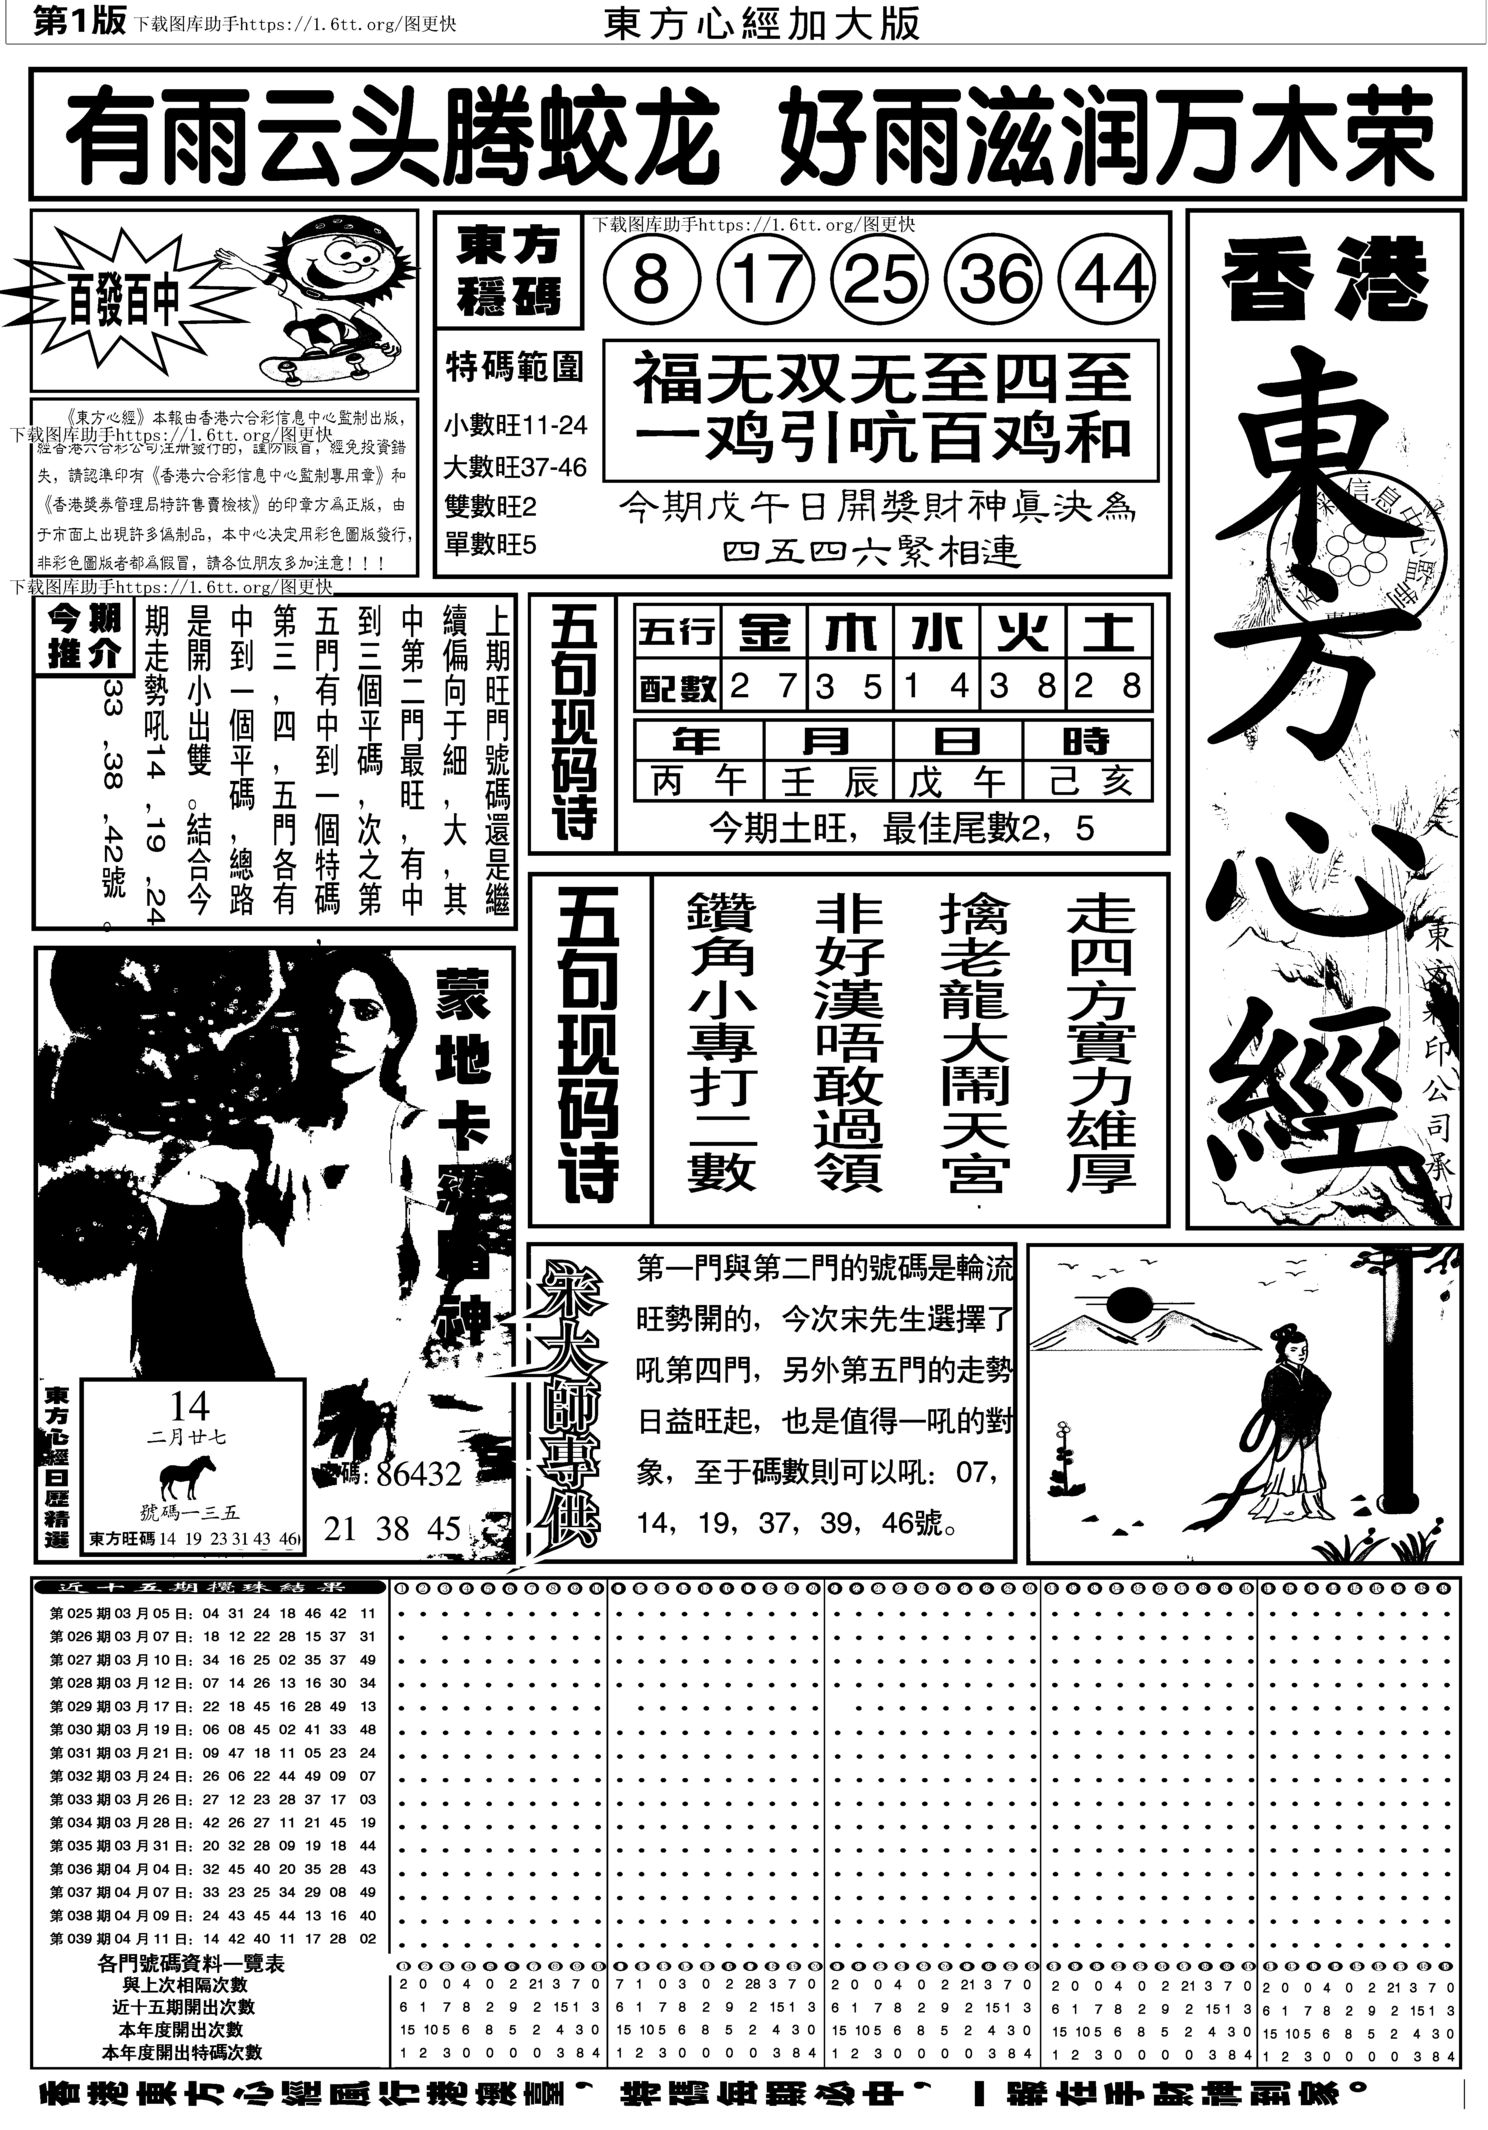 第1版
下载图库助手https://1.6tt.org/图更快
東方心經加大版
有雨云头腾蛟龙 好雨滋润万木荣
百發百中
《東方心經》本報由香港六合彩信息中心監制出版,
下载图库助手https://1.6tt.org/图更快
經香港六合彩公司注册發行的, 謹防假冒, 經免投資錯
失, 請認準印有《香港六合彩信息中心監制專用章》和
《香港獎券管理局特許售賣檢核》的印章方爲正版, 由
于市面上出現許多僞制品, 本中心决定用彩色圖版發行,
非彩色圖版者都爲假冒, 請各位朋友多加注意!!!
下载图库助手https://1.6tt.org/图更快
東方
穩碼
下载图库助手https://1.6tt.org/图更快
8 17 25 36 44
特碼範圍
小數旺11-24
大數旺37-46
雙數旺2
單數旺5
福无双无至四至
一鸡引吭百鸡和
今期戊午日開獎財神眞決為
四五四六緊相連
香港
東方心經
東方彩印公司承印
今期
推介
上期旺門號碼還是繼
續偏向于細,大,其
中第二門最旺,有中
到三個平碼,次之第
五門有中到一個特碼,
第三,四,五門各有
中到一個平碼,總路
是開小出雙。結合今
期走勢吼14,19,24
33,38,42號。
五句现码诗
五行 金 木 水 火 土
配數 2 7 3 5 1 4 3 8 2 8
年 月 日 時
丙午 壬辰 戊午 己亥
今期土旺, 最佳尾數2, 5
五句现码诗
走四方實力雄厚
擒老龍大鬧天宮
非好漢唔敢過領
鑽角小專打二數
蒙地卡羅賭神
東方心經日歷精選
14
二月廿七
號碼一三五
東方旺碼 14 19 23 31 43 46
碼: 86432
21 38 45
宋大師專供
第一門與第二門的號碼是輪流
旺勢開的, 今次宋先生選擇了
吼第四門, 另外第五門的走勢
日益旺起, 也是值得一吼的對
象, 至于碼數則可以吼: 07,
14, 19, 37, 39, 46號。
近十五期攪珠結果
第025期03月05日: 04 31 24 18 46 42 11
第026期03月07日: 18 12 22 28 15 37 31
第027期03月10日: 34 16 25 02 35 37 49
第028期03月12日: 07 14 26 13 16 30 34
第029期03月17日: 22 18 45 16 28 49 13
第030期03月19日: 06 08 45 02 41 33 48
第031期03月21日: 09 47 18 11 05 23 24
第032期03月24日: 26 06 22 44 49 09 07
第033期03月26日: 27 12 23 28 37 17 03
第034期03月28日: 42 26 27 11 21 45 19
第035期03月31日: 20 32 28 09 19 18 44
第036期04月04日: 32 45 40 20 35 28 43
第037期04月07日: 33 23 25 34 29 08 49
第038期04月09日: 24 43 45 44 13 16 40
第039期04月11日: 14 42 40 11 17 28 02
各門號碼資料一覽表
與上次相隔次數 2 0 0 4 0 2 21 3 7 0 7 1 0 3 0 2 28 3 7 0 2 0 0 4 0 2 21 3 7 0 2 0 0 4 0 2 21 3 7 0 2 0 0 4 0 2 21 3 7 0
近十五期開出次數 6 1 7 8 2 9 2 15 1 3 6 1 7 8 2 9 2 15 1 3 6 1 7 8 2 9 2 15 1 3 6 1 7 8 2 9 2 15 1 3 6 1 7 8 2 9 2 15 1 3
本年度開出次數 15 10 5 6 8 5 2 4 3 0 15 10 5 6 8 5 2 4 3 0 15 10 5 6 8 5 2 4 3 0 15 10 5 6 8 5 2 4 3 0 15 10 5 6 8 5 2 4 3 0
本年度開出特碼次數 1 2 3 0 0 0 0 3 8 4 1 2 3 0 0 0 0 3 8 4 1 2 3 0 0 0 0 3 8 4 1 2 3 0 0 0 0 3 8 4 1 2 3 0 0 0 0 3 8 4
香港東方心經風行港澳臺, 特碼每期必中, 一報在手財神到家。